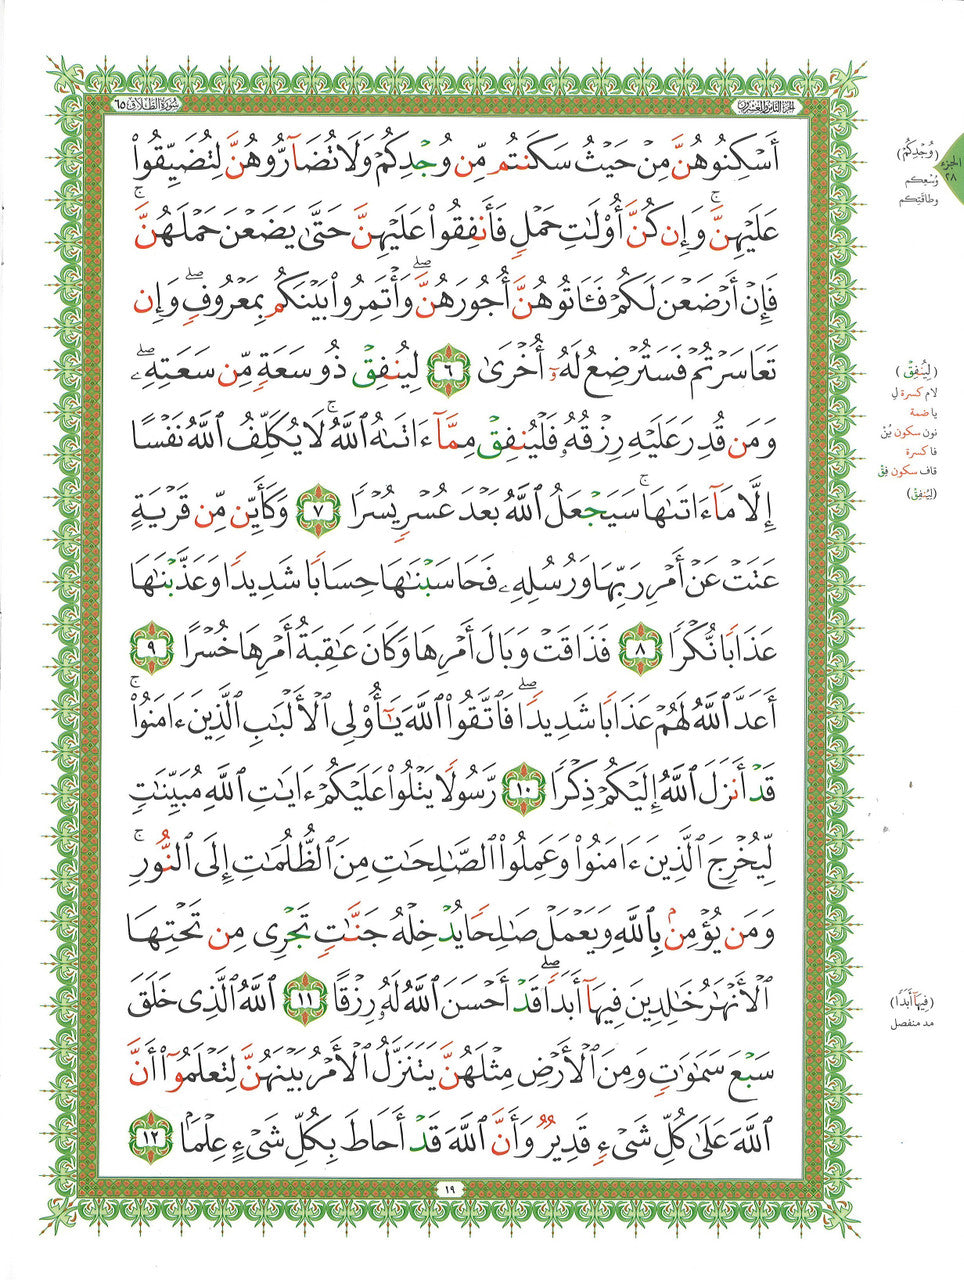 الجزء الثامن والعشرون
سُورَةُ الطَّلَاقِ ٦٥
أَسْكِنُوهُنَّ مِنْ حَيْثُ سَكَنتُم مِّن وُجْدِكُمْ وَلَا تُضَآرُّوهُنَّ لِتُضَيِّقُوا۟
عَلَيْهِنَّ ۚ وَإِن كُنَّ أُو۟لَٰتِ حَمْلٍ فَأَنفِقُوا۟ عَلَيْهِنَّ حَتَّىٰ يَضَعْنَ حَمْلَهُنَّ ۚ
فَإِنْ أَرْضَعْنَ لَكُمْ فَـَٔاتُوهُنَّ أُجُورَهُنَّ ۖ وَأْتَمِرُوا۟ بَيْنَكُم بِمَعْرُوفٍ ۖ وَإِن
تَعَاسَرْتُمْ فَسَتُرْضِعُ لَهُۥٓ أُخْرَىٰ ٦ لِيُنفِقْ ذُو سَعَةٍ مِّن سَعَتِهِۦ ۖ
وَمَن قُدِرَ عَلَيْهِ رِزْقُهُۥ فَلْيُنفِقْ مِمَّآ ءَاتَىٰهُ ٱللَّهُ ۚ لَا يُكَلِّفُ ٱللَّهُ نَفْسًا
إِلَّا مَآ ءَاتَىٰهَا ۚ سَيَجْعَلُ ٱللَّهُ بَعْدَ عُسْرٍ يُسْرًا ٧ وَكَأَيِّن مِّن قَرْيَةٍ
عَتَتْ عَنْ أَمْرِ رَبِّهَا وَرُسُلِهِۦ فَحَاسَبْنَٰهَا حِسَابًا شَدِيدًا وَعَذَّبْنَٰهَا
عَذَابًا نُّكْرًا ٨ فَذَاقَتْ وَبَالَ أَمْرِهَا وَكَانَ عَٰقِبَةُ أَمْرِهَا خُسْرًا ٩
أَعَدَّ ٱللَّهُ لَهُمْ عَذَابًا شَدِيدًا ۖ فَٱتَّقُوا۟ ٱللَّهَ يَٰٓأُو۟لِى ٱلْأَلْبَٰبِ ٱلَّذِينَ ءَامَنُوا۟ ۚ
قَدْ أَنزَلَ ٱللَّهُ إِلَيْكُمْ ذِكْرًا ١٠ رَّسُولًا يَتْلُوا۟ عَلَيْكُمْ ءَايَٰتِ ٱللَّهِ مُبَيِّنَٰتٍ
لِّيُخْرِجَ ٱلَّذِينَ ءَامَنُوا۟ وَعَمِلُوا۟ ٱلصَّٰلِحَٰتِ مِنَ ٱلظُّلُمَٰتِ إِلَى ٱلنُّورِ ۚ
وَمَن يُؤْمِنۢ بِٱللَّهِ وَيَعْمَلْ صَٰلِحًا يُدْخِلْهُ جَنَّٰتٍ تَجْرِى مِن تَحْتِهَا
ٱلْأَنْهَٰرُ خَٰلِدِينَ فِيهَآ أَبَدًا ۖ قَدْ أَحْسَنَ ٱللَّهُ لَهُۥ رِزْقًا ١١ ٱللَّهُ ٱلَّذِى خَلَقَ
سَبْعَ سَمَٰوَٰتٍ وَمِنَ ٱلْأَرْضِ مِثْلَهُنَّ يَتَنَزَّلُ ٱلْأَمْرُ بَيْنَهُنَّ لِتَعْلَمُوٓا۟ أَنَّ
ٱللَّهَ عَلَىٰ كُلِّ شَىْءٍ قَدِيرٌ وَأَنَّ ٱللَّهَ قَدْ أَحَاطَ بِكُلِّ شَىْءٍ عِلْمًۢا ١٢
١٩
الجزء
٢٨
(وُجْدِكُمْ)
وُسْعِكم
وطاقَتِكم
(لِيُنفِقْ)
لام كسرة لِ
يا ضمة
نون سكون يُنْ
فا كسرة
قاف سكون فِقْ
(لِيُنفِقْ)
(فِيهَآ أَبَدًا)
مد منفصل